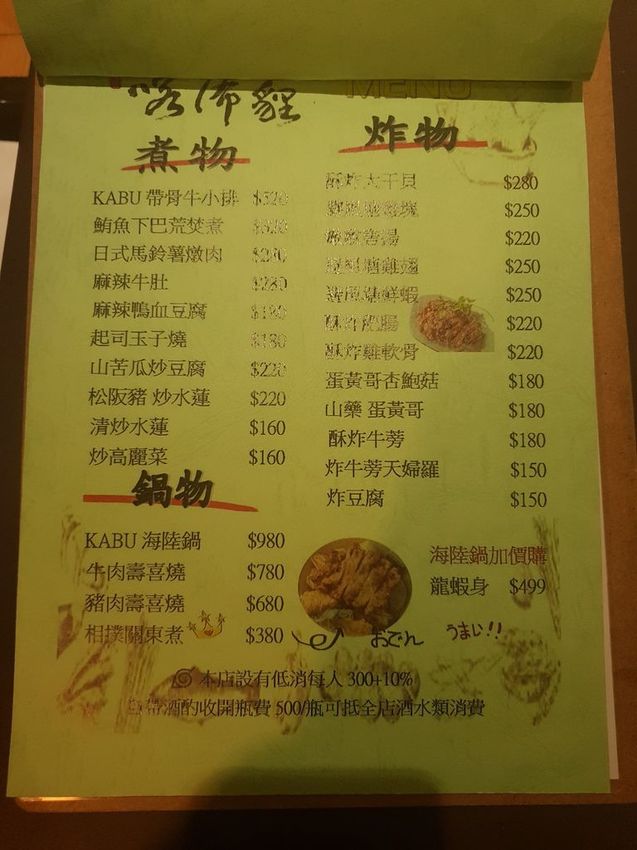 MENU
煮物
KABU 帶骨牛小排 $520
鮪魚下巴荒焚煮
日式馬鈴薯燉肉
麻辣牛肚 $280
麻辣鴨血豆腐
起司玉子燒 $180
山苦瓜炒豆腐 $220
松阪豬 炒水蓮 $220
清炒水蓮 $160
炒高麗菜 $160
鍋物
KABU 海陸鍋 $980
牛肉壽喜燒 $780
豬肉壽喜燒 $680
相撲關東煮 $380
炸物
酥炸大干貝 $280
$250
$220
$250
$250
$220
酥炸雞軟骨 $220
蛋黃哥杏鮑菇 $180
山藥 蛋黃哥 $180
酥炸牛蒡 $180
炸牛蒡天婦羅 $150
炸豆腐 $150
海陸鍋加價購
龍蝦身 $499
おでん うまい!!
本店設有低消每人 300+10%
自帶酒酌收開瓶費 500/瓶可抵全店酒水類消費